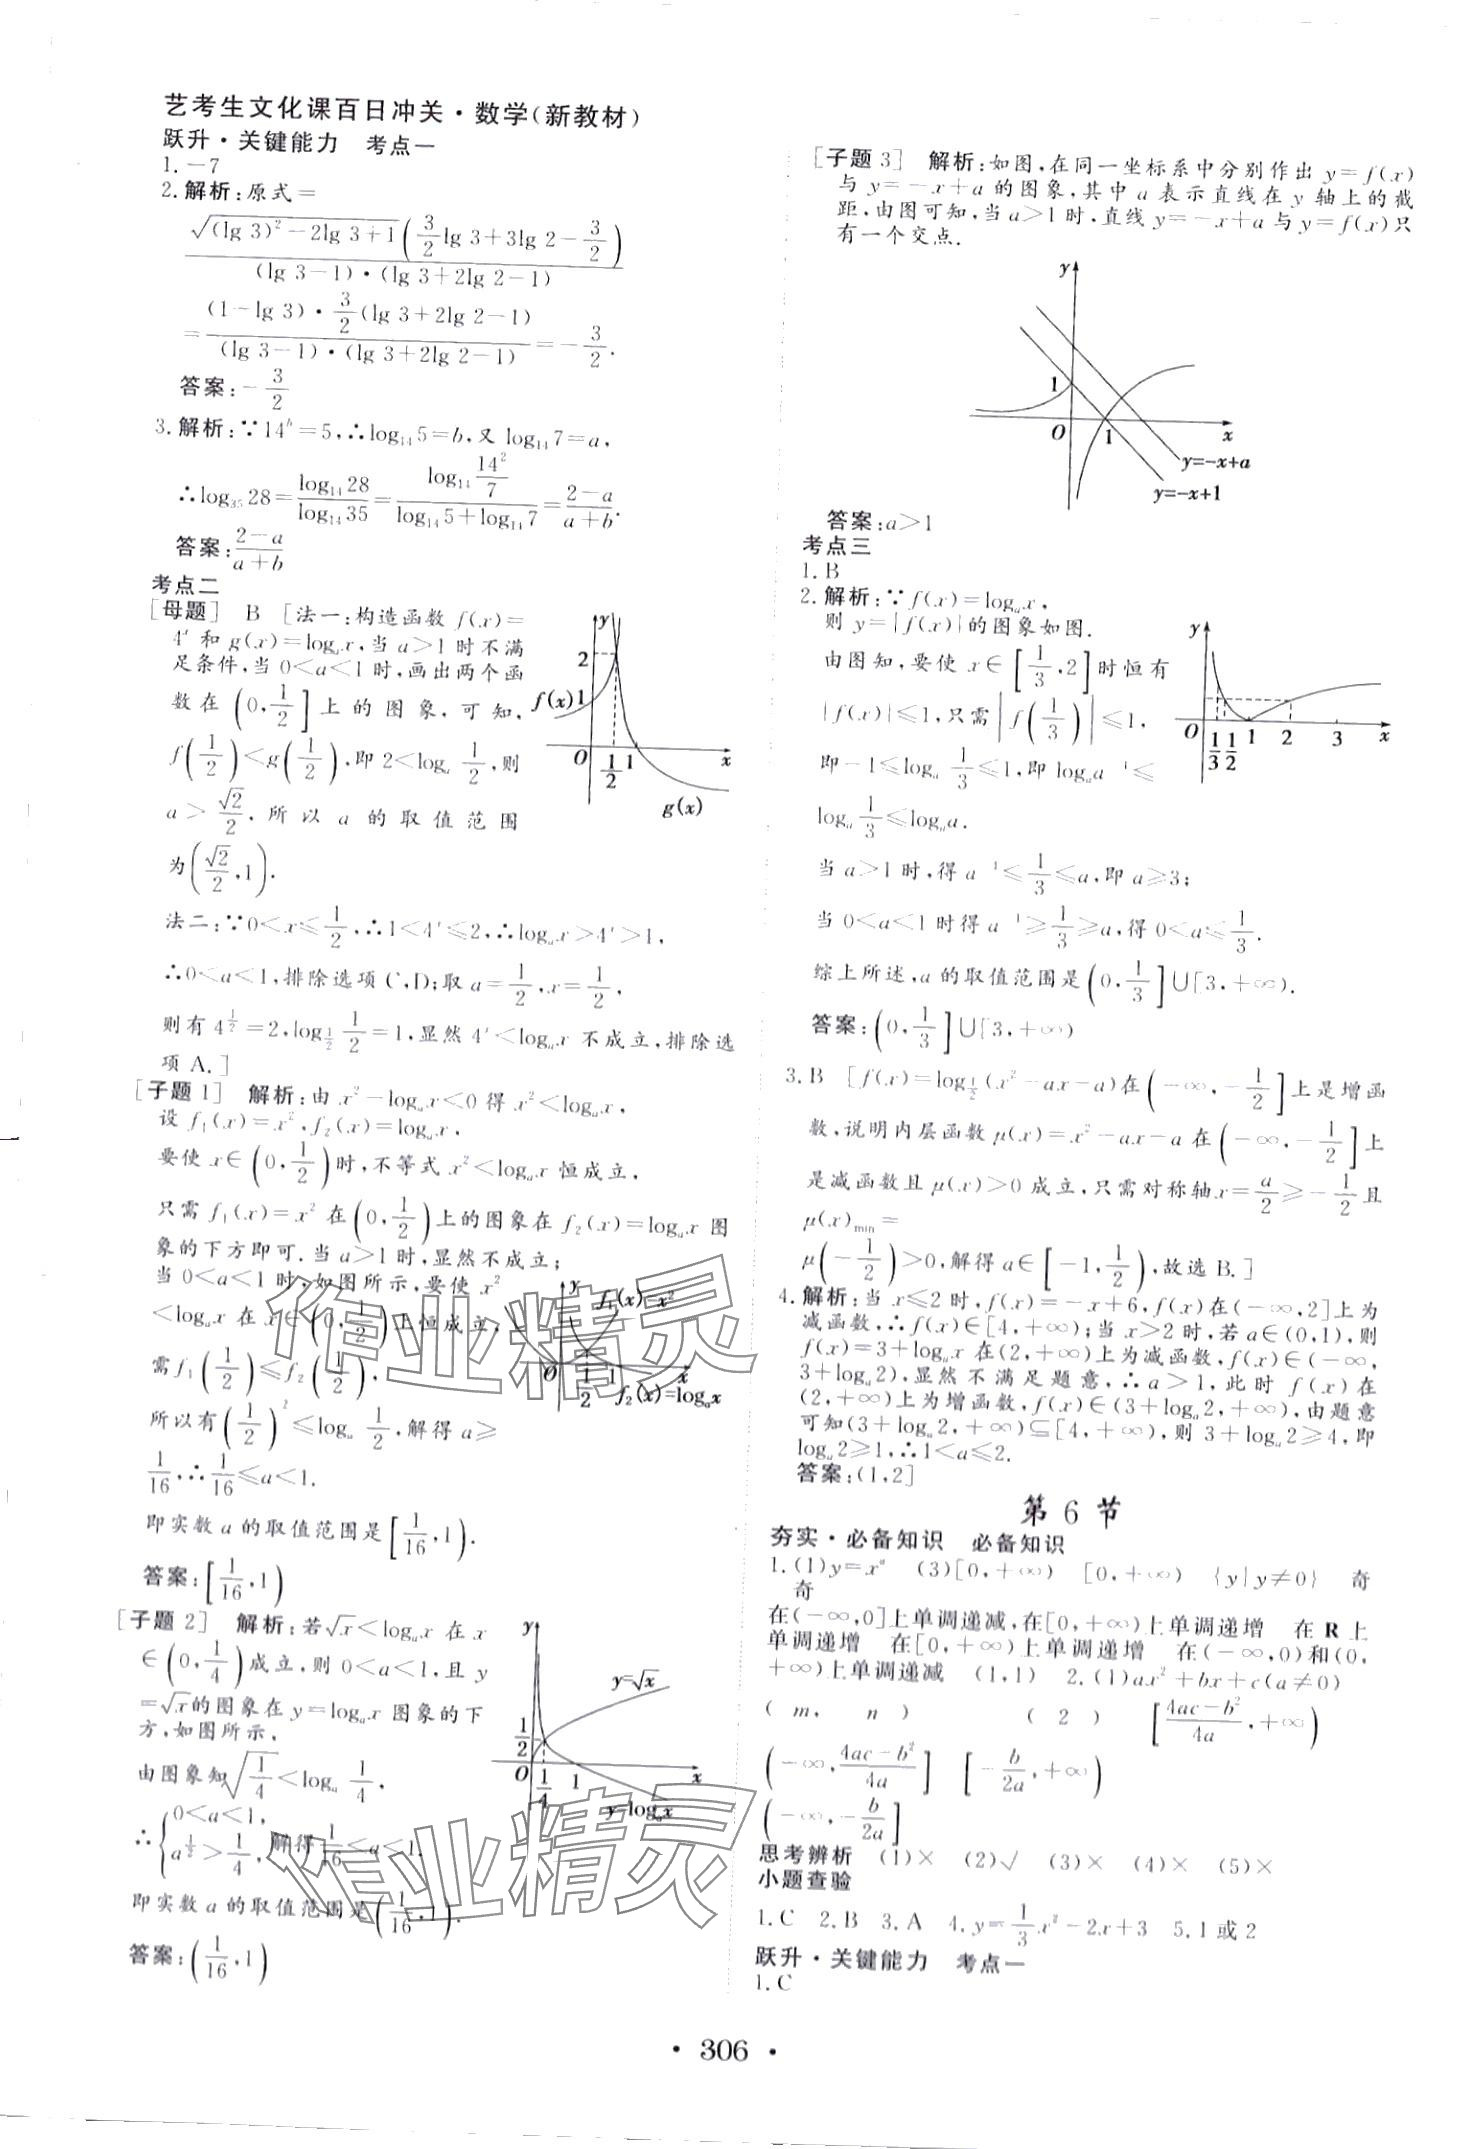 艺考生文化课百日冲关·数学(新教材)
跃升·关键能力 考点一
1.-7
2.解析:原式=
√((lg 3)²-2lg 3+1)(3/2 lg 3+3lg 2-3/2)/((lg 3-1)·(lg 3+2lg 2-1))
=(1-lg 3)·3/2(lg 3+2lg 2-1)/((lg 3-1)·(lg 3+2lg 2-1))=-3/2.
答案:-3/2
3.解析:∵14ᵇ=5,∴log₁₄5=b,又 log₁₄7=a,
∴log₃₅28=log₁₄28/log₁₄35=log₁₄(14²/7)/(log₁₄5+log₁₄7)=(2-a)/(a+b).
答案:(2-a)/(a+b)
考点二
[母题] B [法一:构造函数 f(x)=
4ˣ 和 g(x)=logₐx,当 a>1 时不满
足条件,当 0<a<1 时,画出两个函
数在(0,1/2]上的图象,可知,
f(1/2)<g(1/2),即 2<logₐ 1/2,则
a>√2/2,所以 a 的取值范围
为(√2/2,1).
y
2
f(x)
1
O
1/2
1
x
g(x)
法二:∵0<x≤1/2,∴1<4ˣ≤2,∴logₐx>4ˣ>1,
∴0<a<1,排除选项 C,D;取 a=1/2,x=1/2,
则有 4^(1/2)=2,log_(1/2) 1/2=1,显然 4ˣ<logₐx 不成立,排除选
项 A.]
[子题 1] 解析:由 x²-logₐx<0 得 x²<logₐx,
设 f₁(x)=x²,f₂(x)=logₐx,
要使 x∈(0,1/2)时,不等式 x²<logₐx 恒成立,
只需 f₁(x)=x² 在(0,1/2)上的图象在 f₂(x)=logₐx 图
象的下方即可.当 a>1 时,显然不成立;
当 0<a<1 时,如图所示,要使 x²
<logₐx 在 x∈(0,1/2)上恒成立,
需 f₁(1/2)≤f₂(1/2),
y
f₁(x)=x²
O
1/2
1
x
f₂(x)=logₐx
所以有(1/2)²≤logₐ 1/2,解得 a≥
1/16,∴1/16≤a<1.
即实数 a 的取值范围是[1/16,1).
答案:[1/16,1)
[子题 2] 解析:若√x<logₐx 在 x
∈(0,1/4)成立,则 0<a<1,且 y
=√x的图象在 y=logₐx 图象的下
方,如图所示,
由图象知√(1/4)<logₐ 1/4,
∴{0<a<1,
a^(1/2)>1/4,解得1/16<a<1.
y
y=√x
1/2
O
1/4
1
x
y=logₐx
即实数 a 的取值范围是(1/16,1).
答案:(1/16,1)
[子题 3] 解析:如图,在同一坐标系中分别作出 y=f(x)
与 y=-x+a 的图象,其中 a 表示直线在 y 轴上的截
距,由图可知,当 a>1 时,直线 y=-x+a 与 y=f(x)只
有一个交点.
y
1
O
1
x
y=-x+a
y=-x+1
答案:a>1
考点三
1.B
2.解析:∵f(x)=logₐx,
则 y=|f(x)|的图象如图.
由图知,要使 x∈[1/3,2]时恒有
|f(x)|≤1,只需|f(1/3)|≤1,
即-1≤logₐ 1/3≤1,即 logₐa⁻¹≤
logₐ 1/3≤logₐa.
y
O
1/3
1/2
1
2
3
x
当 a>1 时,得 a⁻¹≤1/3≤a,即 a≥3;
当 0<a<1 时得 a⁻¹≥1/3≥a,得 0<a≤1/3.
综上所述,a 的取值范围是(0,1/3]∪[3,+∞).
答案:(0,1/3]∪[3,+∞)
3.B [f(x)=log_(1/2)(x²-ax-a)在(-∞,-1/2]上是增函
数,说明内层函数 μ(x)=x²-ax-a 在(-∞,-1/2]上
是减函数且 μ(x)>0 成立,只需对称轴x=a/2≥-1/2且
μ(x)min=
μ(-1/2)>0,解得 a∈[-1,1/2),故选 B.]
4.解析:当 x≤2 时,f(x)=-x+6,f(x)在(-∞,2]上为
减函数,∴f(x)∈[4,+∞);当 x>2 时,若 a∈(0,1),则
f(x)=3+logₐx 在(2,+∞)上为减函数,f(x)∈(-∞,
3+logₐ2),显然不满足题意,∴a>1,此时 f(x)在
(2,+∞)上为增函数,f(x)∈(3+logₐ2,+∞),由题意
可知(3+logₐ2,+∞)⊆[4,+∞),则 3+logₐ2≥4,即
logₐ2≥1,∴1<a≤2.
答案:(1,2]
第 6 节
夯实·必备知识 必备知识
1.(1)y=xᵅ (3)[0,+∞) [0,+∞) {y|y≠0} 奇
奇
在(-∞,0]上单调递减,在[0,+∞)上单调递增 在 R 上
单调递增 在[0,+∞)上单调递增 在(-∞,0)和(0,
+∞)上单调递减 (1,1) 2.(1)ax²+bx+c(a≠0)
(m, n) (2) [(4ac-b²)/4a,+∞)
(-∞,(4ac-b²)/4a] [-b/2a,+∞)
(-∞,-b/2a]
思考辨析 (1)× (2)√ (3)× (4)× (5)×
小题查验
1.C 2.B 3.A 4.y=1/3x²-2x+3 5.1 或 2
跃升·关键能力 考点一
1.C
作业精灵
作业精灵
·306·